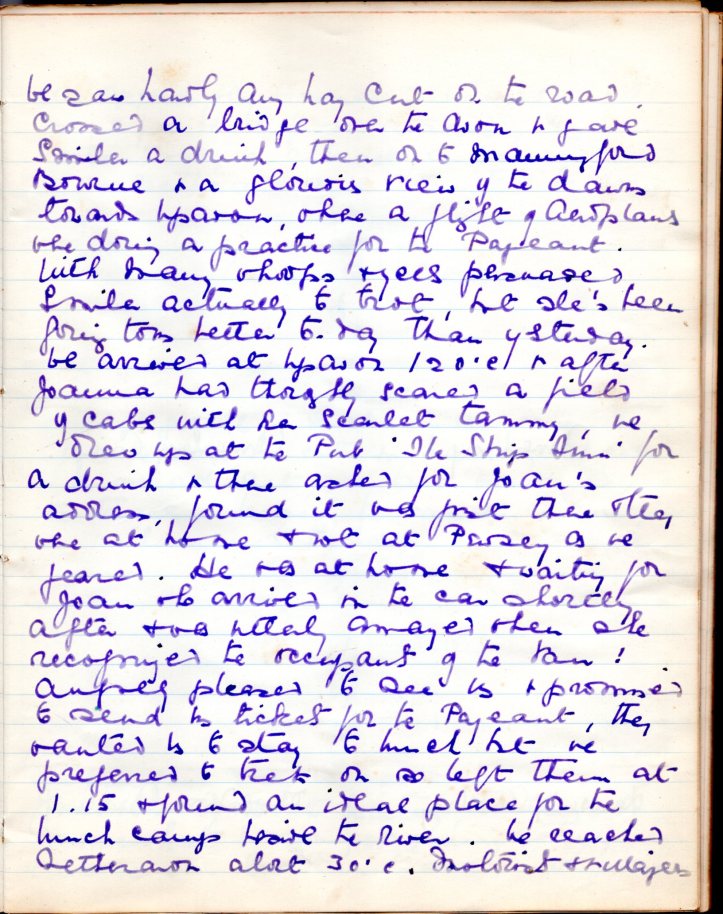 We saw hardly any hay cut on the road.
Crossed a bridge over the Avon & gave
Smiler a drink, then on to Manningford
Bourne & a glorious view of the downs
towards Upavon, where a flight of Aeroplans
were doing a practice for the Pageant.
With many whoops & yells persuaded
Smiler actually to trot, but she's been
going tons better to-day than yesterday.
We arrived at Upavon 12 o'c & after
Joanna had thoroughly scared a field
of cabs with her scarlet tammy, we
drew up at the Pub 'The Ship Inn' for
a drink & there asked for Joan's
address, found it was just there & they
were at home & not at Pewsey as we
feared. He was at home & waiting for
Joan who arrived in the car shortly
after & was utterly amazed when she
recognized the occupants of the Van!
pleased to see us & promised
to send us tickets for the Pageant, they
wanted us to stay to lunch but we
preferred to trek on so left them at
1.15 & found an ideal place for the
lunch camp beside the River. We reached
Netheravon about 3 o'c. Motorists & villagers